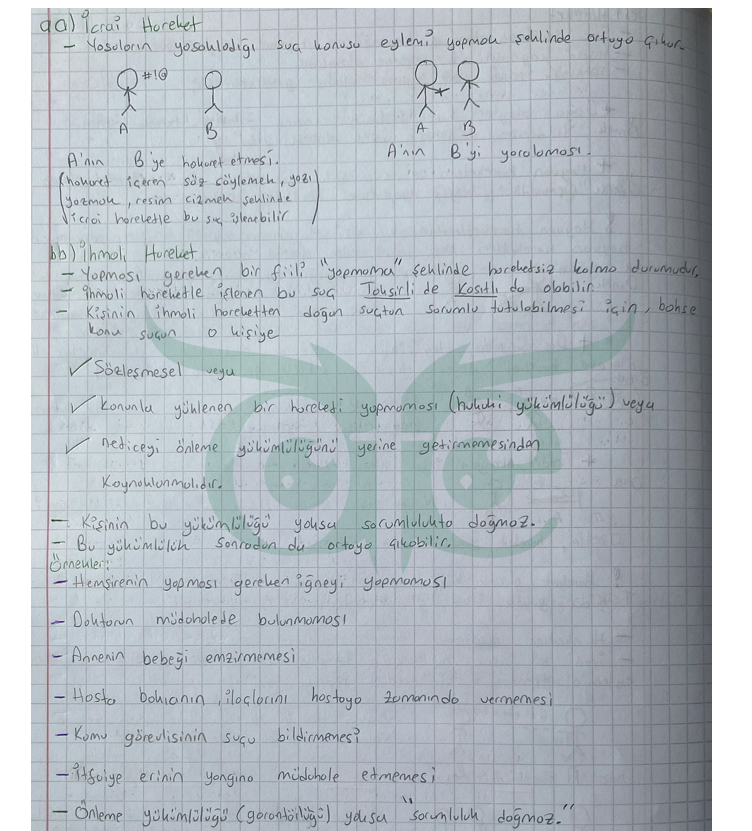 aa) İcrai Hareket
- Yasaların yasakladığı suç konusu eylemi yapmak şeklinde ortaya çıkar.
#!@
A B
A B
A'nın B'ye hakaret etmesi.
A'nın B'yi yaralaması.
(hakaret içeren söz söylemek, yazı
yazmak, resim çizmek şeklinde
icrai hareketle bu suç işlenebilir)
bb) İhmali Hareket
- Yapması gereken bir fiili "yapmama" şeklinde hareketsiz kalma durumudur.
- İhmali hareketle işlenen bu suç Taksirli de kasıtlı da olabilir.
- Kişinin ihmali hareketten doğan suçtan sorumlu tutulabilmesi için, bahse
konu suçun o kişiye
✓ Sözleşmesel veya
✓ Kanunla yüklenen bir hareketi yapmaması (hukuki yükümlülüğü) veya
✓ neticeyi önleme yükümlülüğünü yerine getirmemesinden
Kaynaklanmalıdır.
- Kişinin bu yükümlülüğü yoksa sorumlulukta doğmaz.
- Bu yükümlülük sonradan da ortaya çıkabilir.
Örnekler:
- Hemşirenin yapması gereken iğneyi yapmaması
- Doktorun müdahalede bulunmaması
- Annenin bebeği emzirmemesi
- Hasta bakıcının, ilaçlarını hastaya zamanında vermemesi
- Kamu görevlisinin suçu bildirmemesi
- İtfaiye erinin yangına müdahale etmemesi
- Önleme yükümlülüğü (garantörlüğü) yoksa "sorumluluk doğmaz."